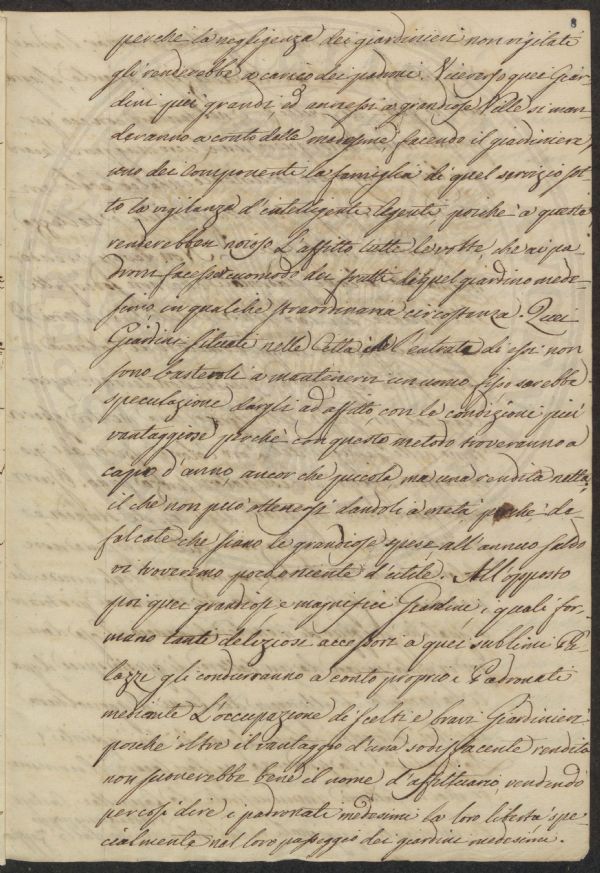 8
perchè la negligenza dei giardinieri non vigilati
gli renderebbe a carico dei padroni. Viceverso quei Giar-
dini più grandi, ed annessi a grandiose Ville si man-
deranno a conto delle medesime, facendo il giardiniere
uno dei componenti la famiglia di quel servizio sot-
to la vigilanza d'intelligente Agente poichè a questa
renderebbesi noioso L'affitto tutte le volte, che ai pa-
droni facesse comodo dei frutti di quel giardino mede-
simo in qualche straordinaria circostanza. Quei
Giardini situati nelle Città se l'entrate di essi non
sono bastevoli a mantenervi un uomo fisso sarebbe
speculazione dargli ad affitto, con le condizioni più
vantaggiose perchè con questo metodo troveranno a
capo d'anno, ancor che piccola ma una rendita netta,
il che non può ottenersi dandoli a metà perchè de-
falcate che siano le grandiose spese all'annuo saldo
vi troveremo poco o niente d'utile. All'opposto
poi quei grandiosi e magnifici Giardini, quali for-
mano tanti deliziosi accessori a quei sublimi Pa-
lazzi gli condurranno a conto proprio i Padronati
mediante L'occupazione di scelti e bravi Giardinieri
poichè oltre il vantaggio d'una sodisfacente rendita
non suonerebbe bene il nome d'affittuario, vendendo
per così dire i padronati medesimi la loro libertà spe-
cialmente nel loro passeggio dei giardini medesimi.